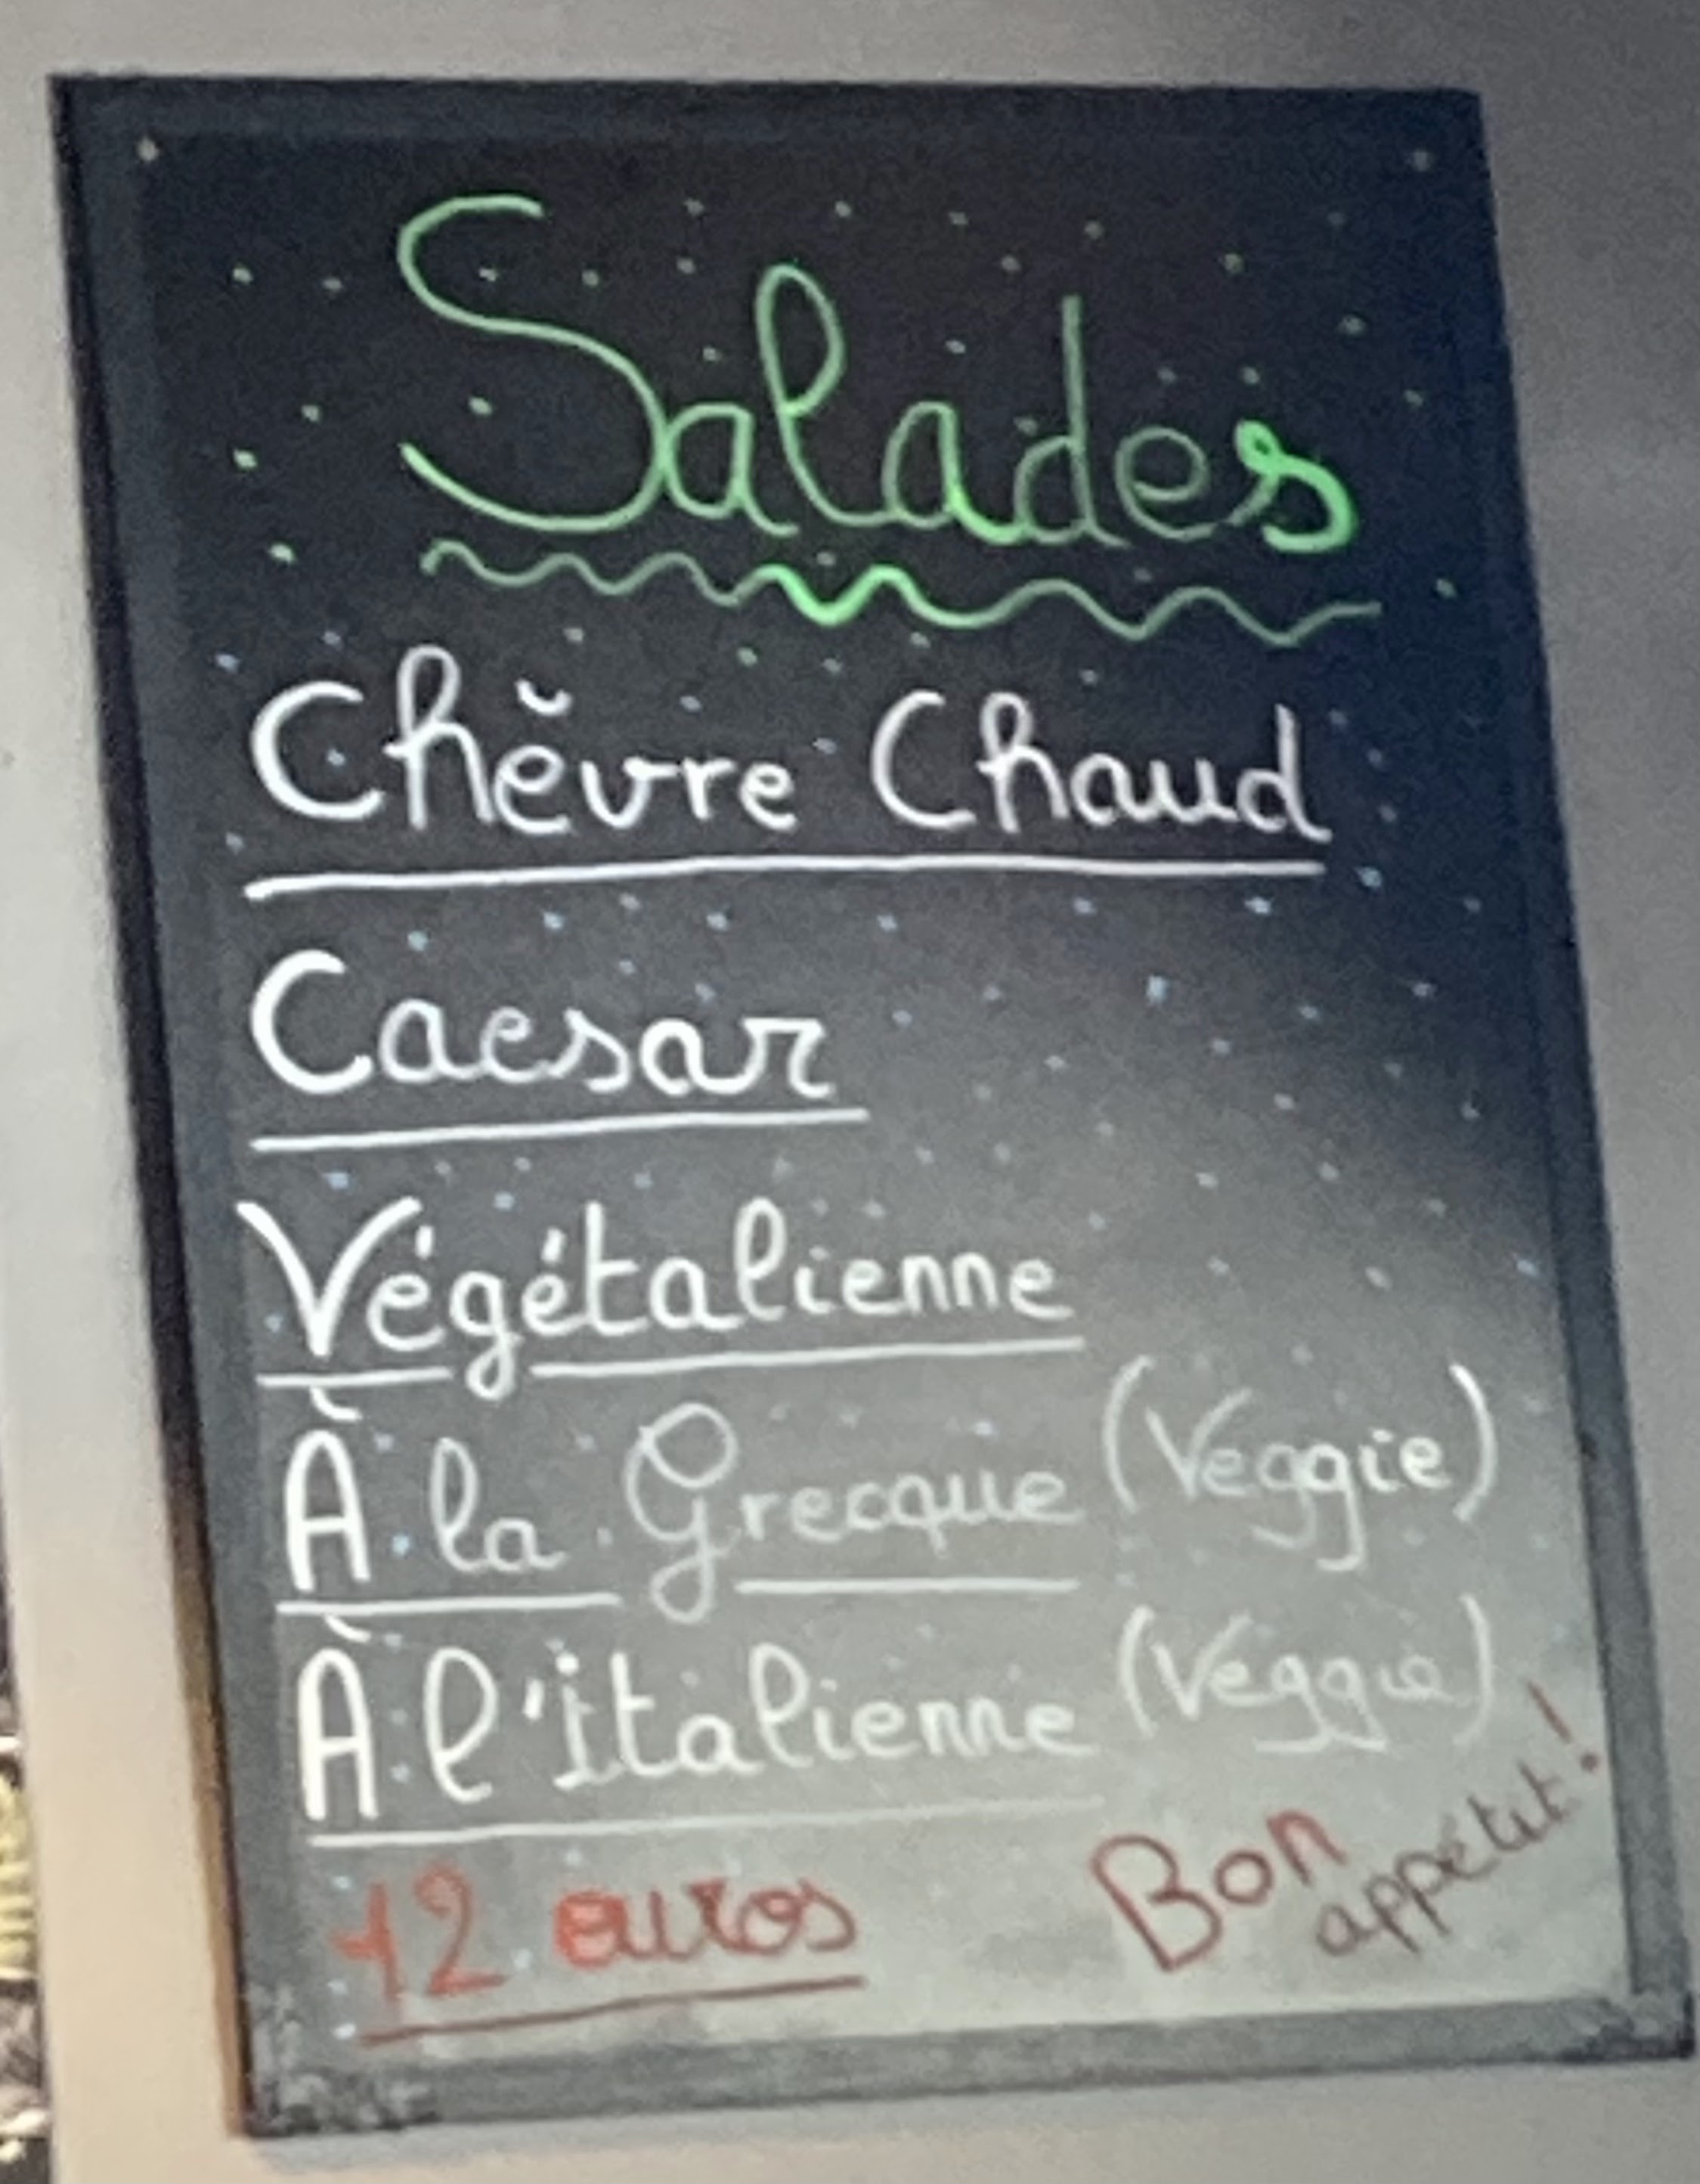 Salades
Chèvre Chaud
Caesar
Végétalienne
À la Grecque (Veggie)
À l'italienne (Veggie)
12 euros
Bon
appétit!